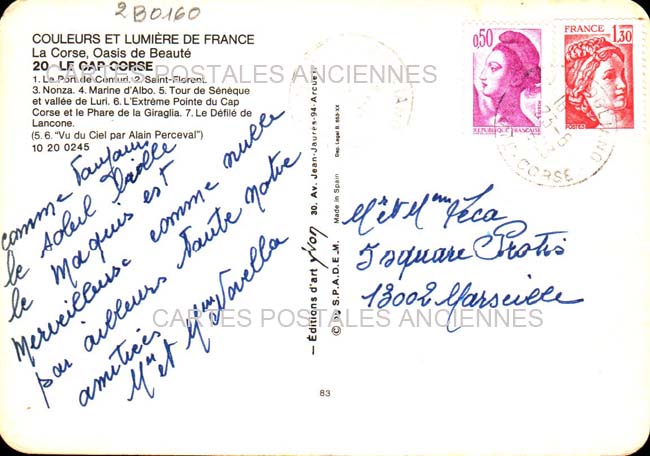 2B0160
COULEURS ET LUMIÈRE DE FRANCE
La Corse, Oasis de Beauté
20 - LE CAP CORSE
1. Le Port de Centuri. 2. Saint-Florent.
3. Nonza. 4. Marine d'Albo. 5. Tour de Sénèque
et vallée de Luri. 6. L'Extrême Pointe du Cap
Corse et le Phare de la Giraglia. 7. Le Défilé de
Lancone.
(5. 6. "Vu du Ciel par Alain Perceval")
10 20 0245
CARTES POSTALES ANCIENNES
comme Toujours
le soleil brille
le Maquis est
Merveilleuse comme nulle
par ailleurs Toute notre
amitiés
Mr et Mme Novella
— Éditions d'art yvon — 30, Av. Jean-Jaurès-94-Arcueil
Made in Spain
© by S.P.A.D.E.M.
83
0,50
RÉPUBLIQUE FRANÇAISE
FRANCE
1,30
POSTES
CORSE
Mr et Mme Zeca
5 square Protis
13002 Marseille
CARTES POSTALES ANCIENNES